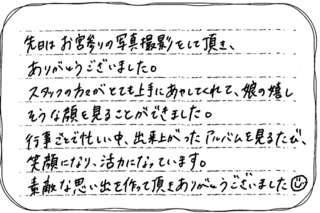 先日はお宮参りの写真撮影をして頂き、
ありがとうございました。
スタッフの方々がとても上手にあやしてくれて、娘の嬉し
そうな顔を見ることができました。
行事ごとで忙しい中、出来上がったアルバムを見るたび、
笑顔になり、活力になっています。
素敵な思い出を作って頂きありがとうございました